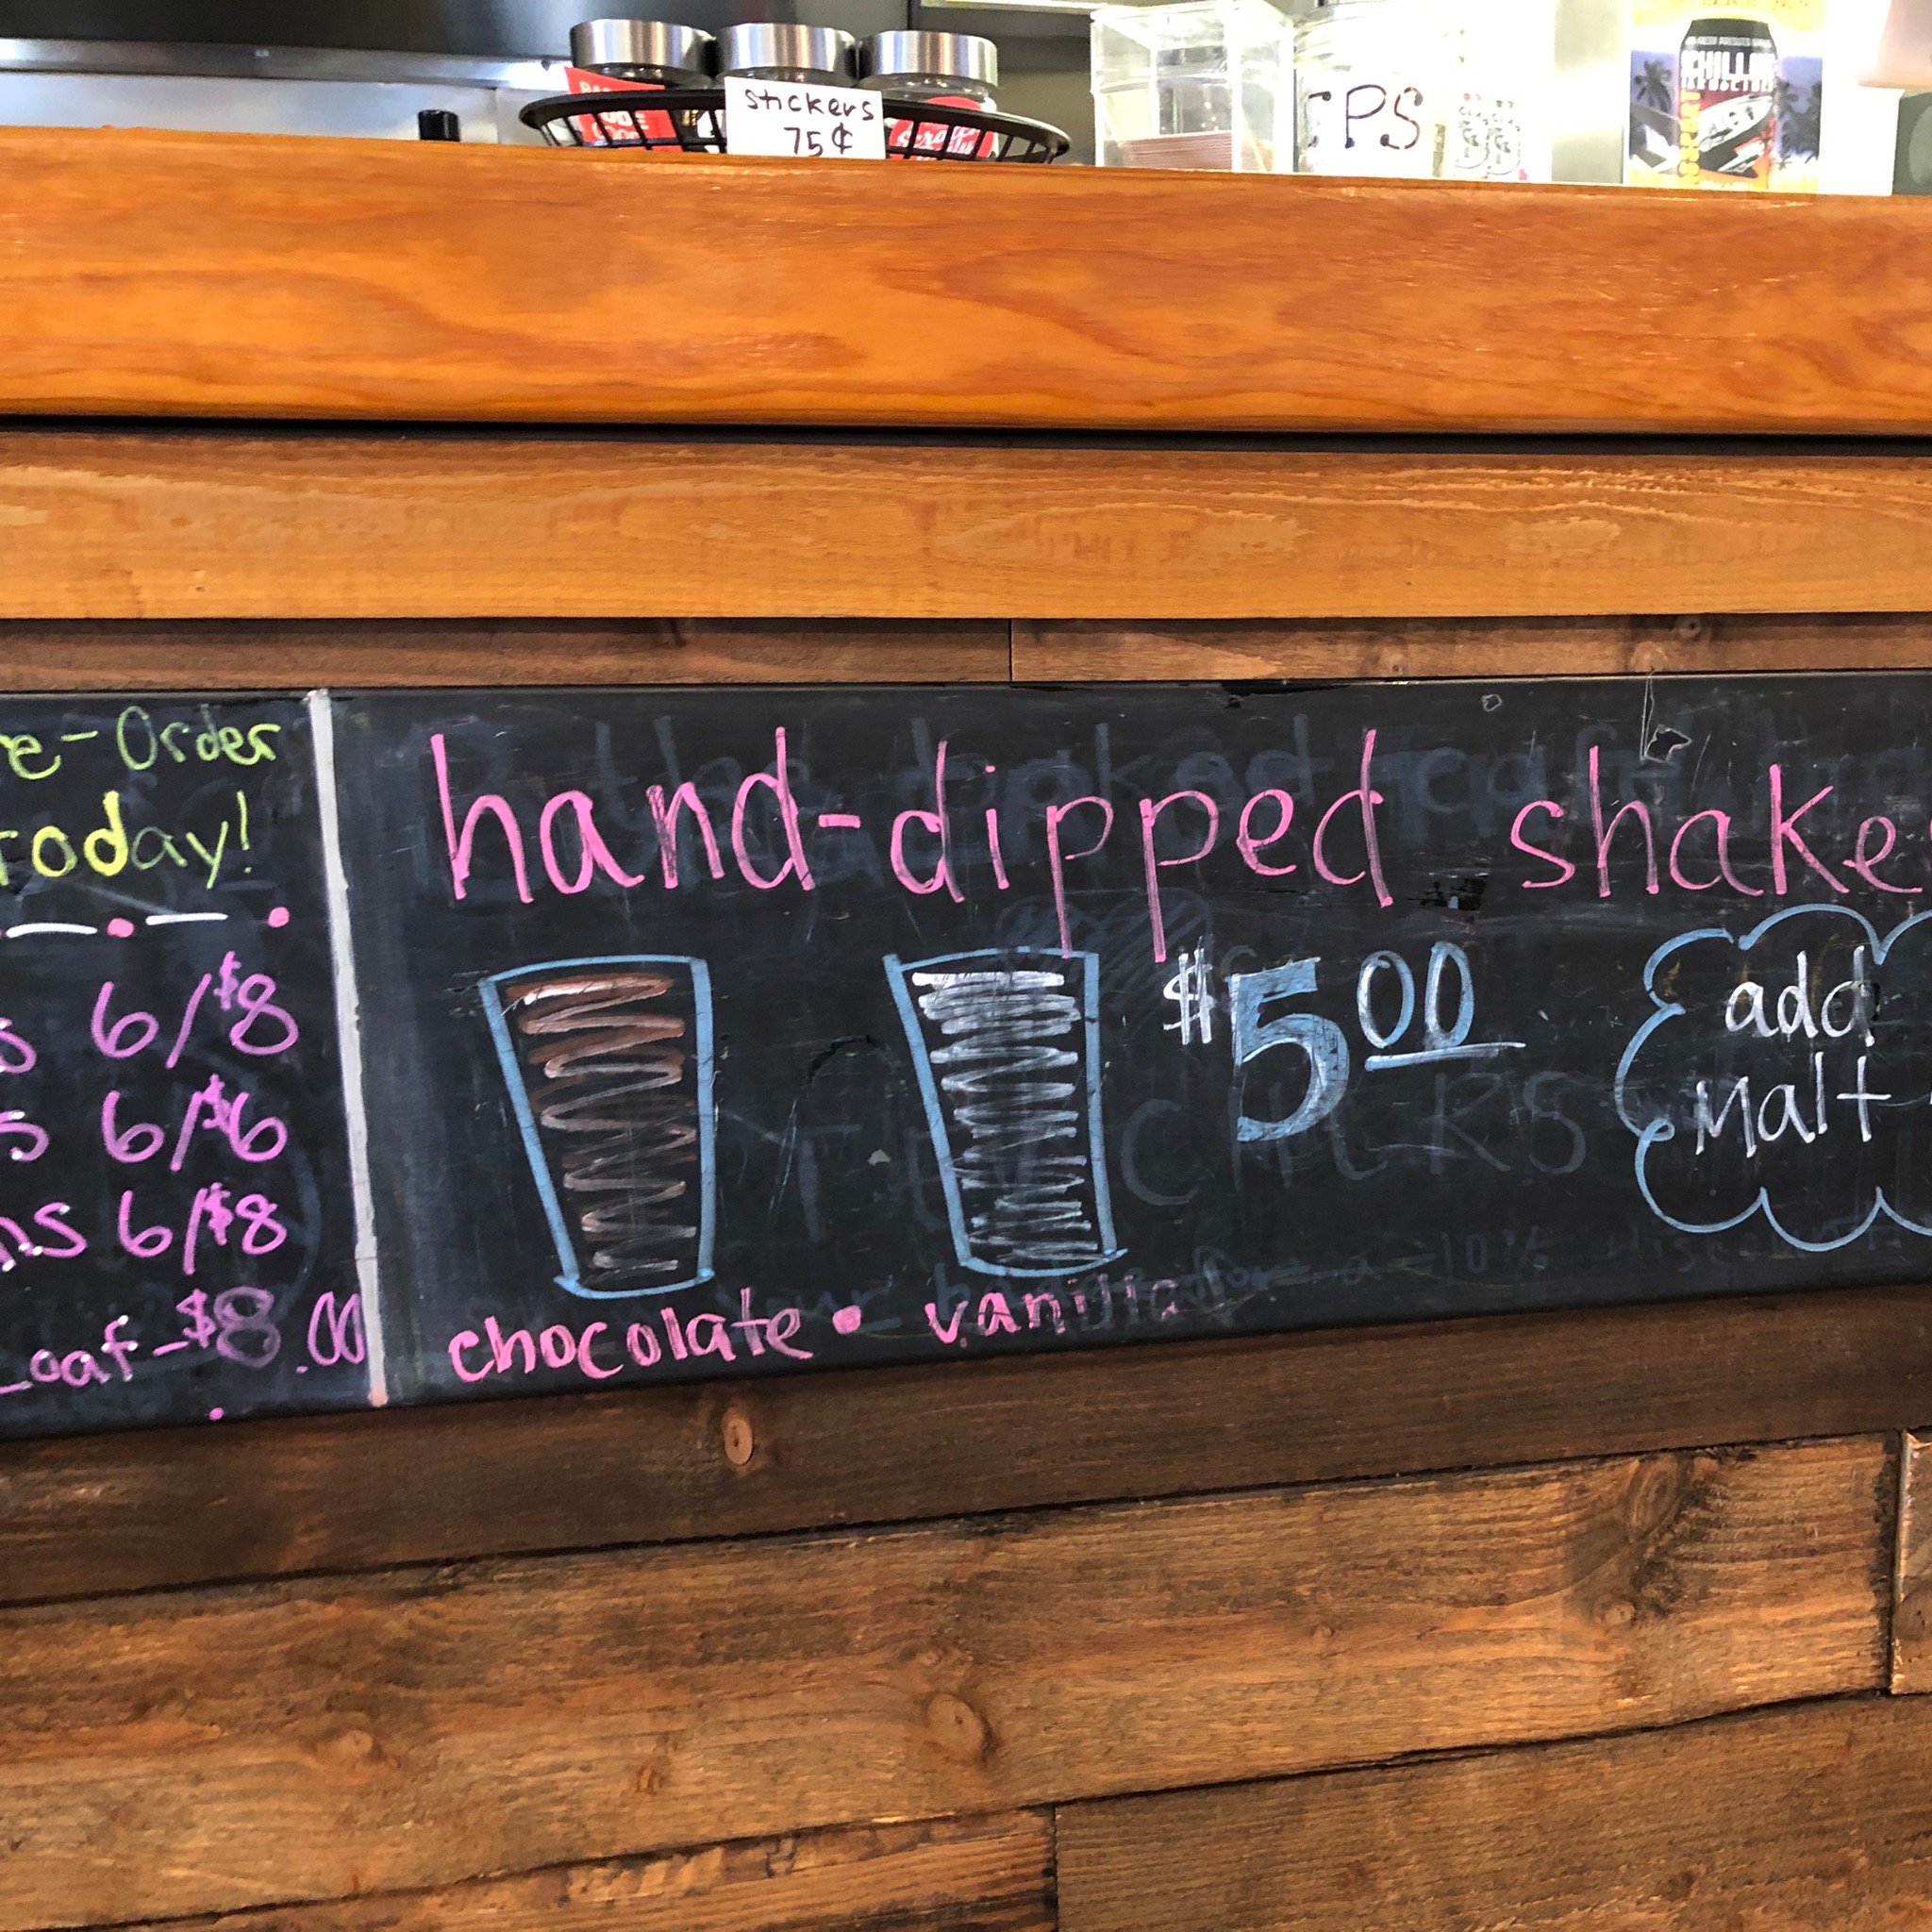 stickers
75¢
CHILLER
e-Order
Today!
s 6/$8
s 6/$6
ns 6/$8
Loaf-$8.00
hand-dipped shake
$5.00
add
Malt
chocolate • vanilla